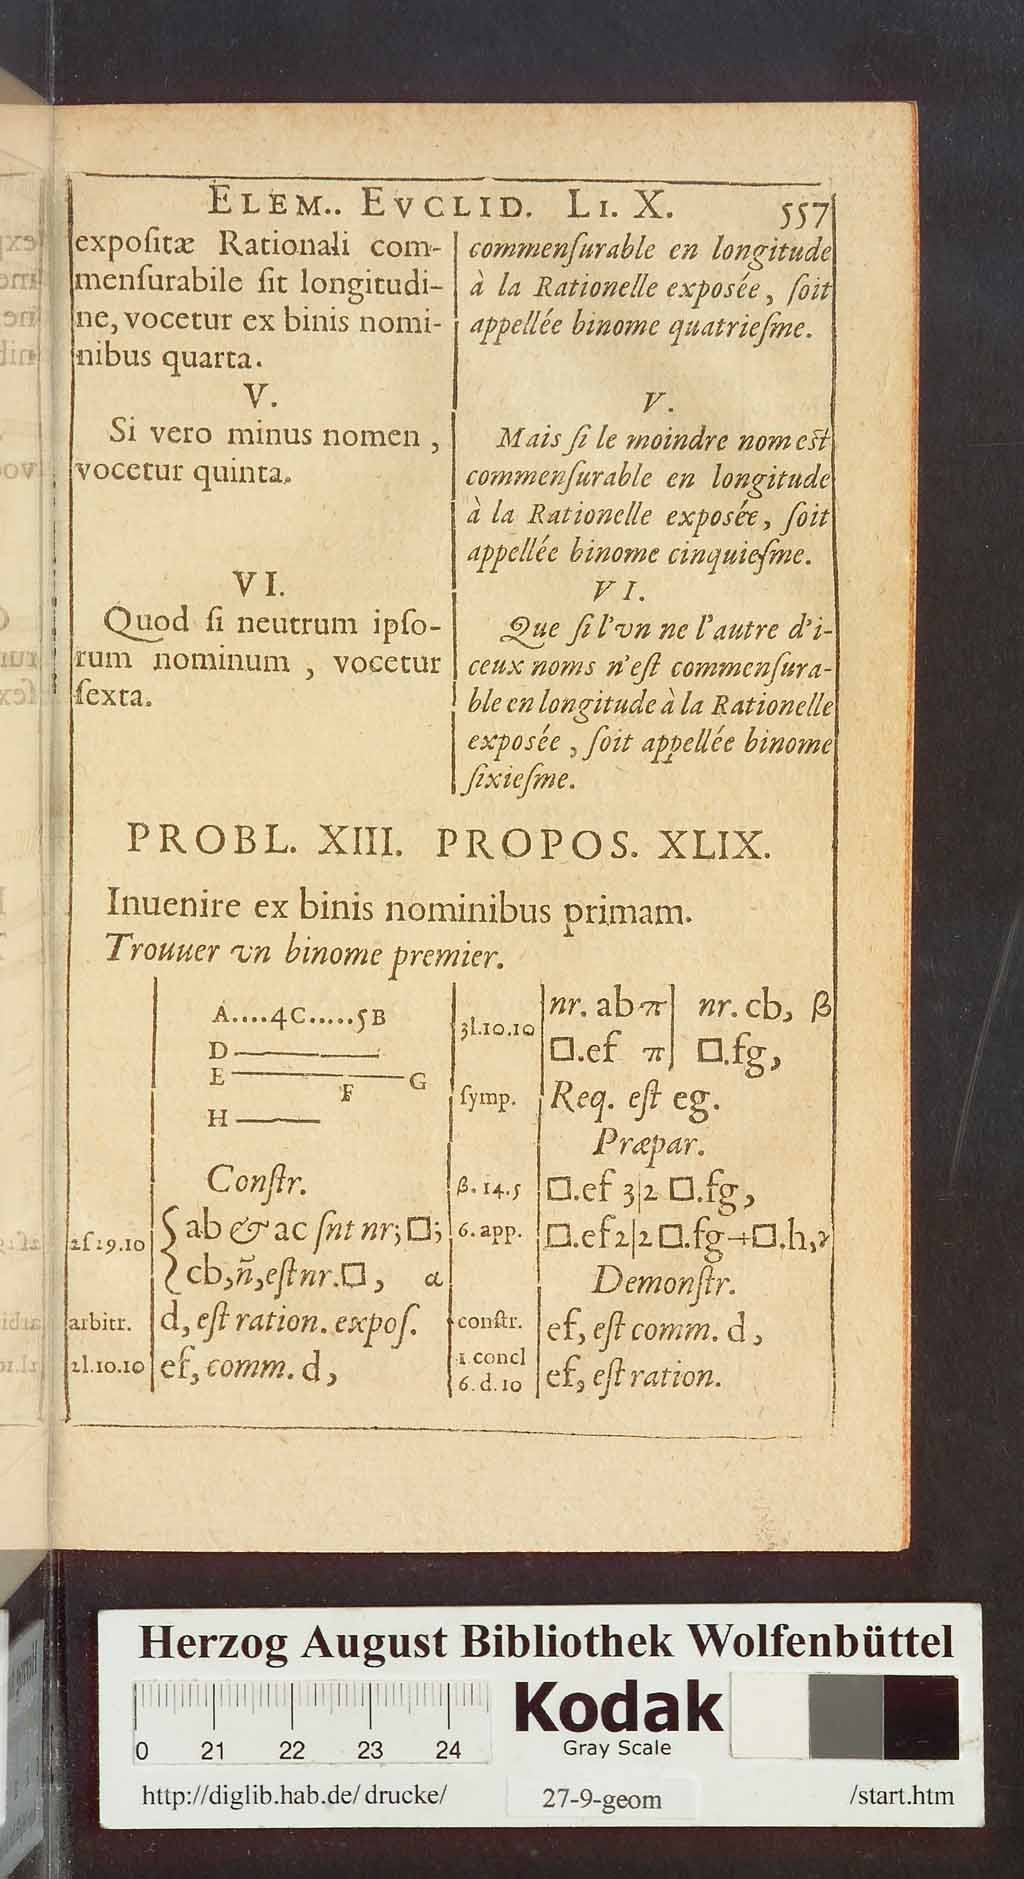 ELEM.. EVCLID. LI. X. 557
expoſitæ Rationali com-
menſurabile ſit longitudi-
ne, vocetur ex binis nomi-
nibus quarta.
V.
Si vero minus nomen ,
vocetur quinta.
VI.
Quod ſi neutrum ipſo-
rum nominum , vocetur
ſexta.
commenſurable en longitude
à la Rationelle exposée, ſoit
appellée binome quatrieſme.
V.
Mais ſi le moindre nom est
commenſurable en longitude
à la Rationelle exposée, ſoit
appellée binome cinquieſme.
VI.
Que ſi l'vn ne l'autre d'i-
ceux noms n'eſt commenſura-
ble en longitude à la Rationelle
exposée , ſoit appellée binome
ſixieſme.
PROBL. XIII. PROPOS. XLIX.
Inuenire ex binis nominibus primam.
Trouuer vn binome premier.
A....4C.....5B
D
E G
F
H
Conſtr.
2ſ29.10 ab & ac ſnt nr; □;
cb, ñ, eſt nr. □, α
arbitr. d, eſt ration. expoſ.
2l.10.10 ef, comm. d,
3l.10.10 nr. ab π | nr. cb, β
□.ef π | □.fg,
ſymp. Req. eſt eg.
Præpar.
β. 14.5 □.ef 3|2 □.fg,
6. app. □.ef 2|2 □.fg + □.h, γ
Demonſtr.
conſtr. ef, eſt comm. d,
1. concl
6. d. 10 ef, eſt ration.
Herzog August Bibliothek Wolfenbüttel
0 21 22 23 24
Kodak
Gray Scale
http://diglib.hab.de/drucke/ 27-9-geom /start.htm